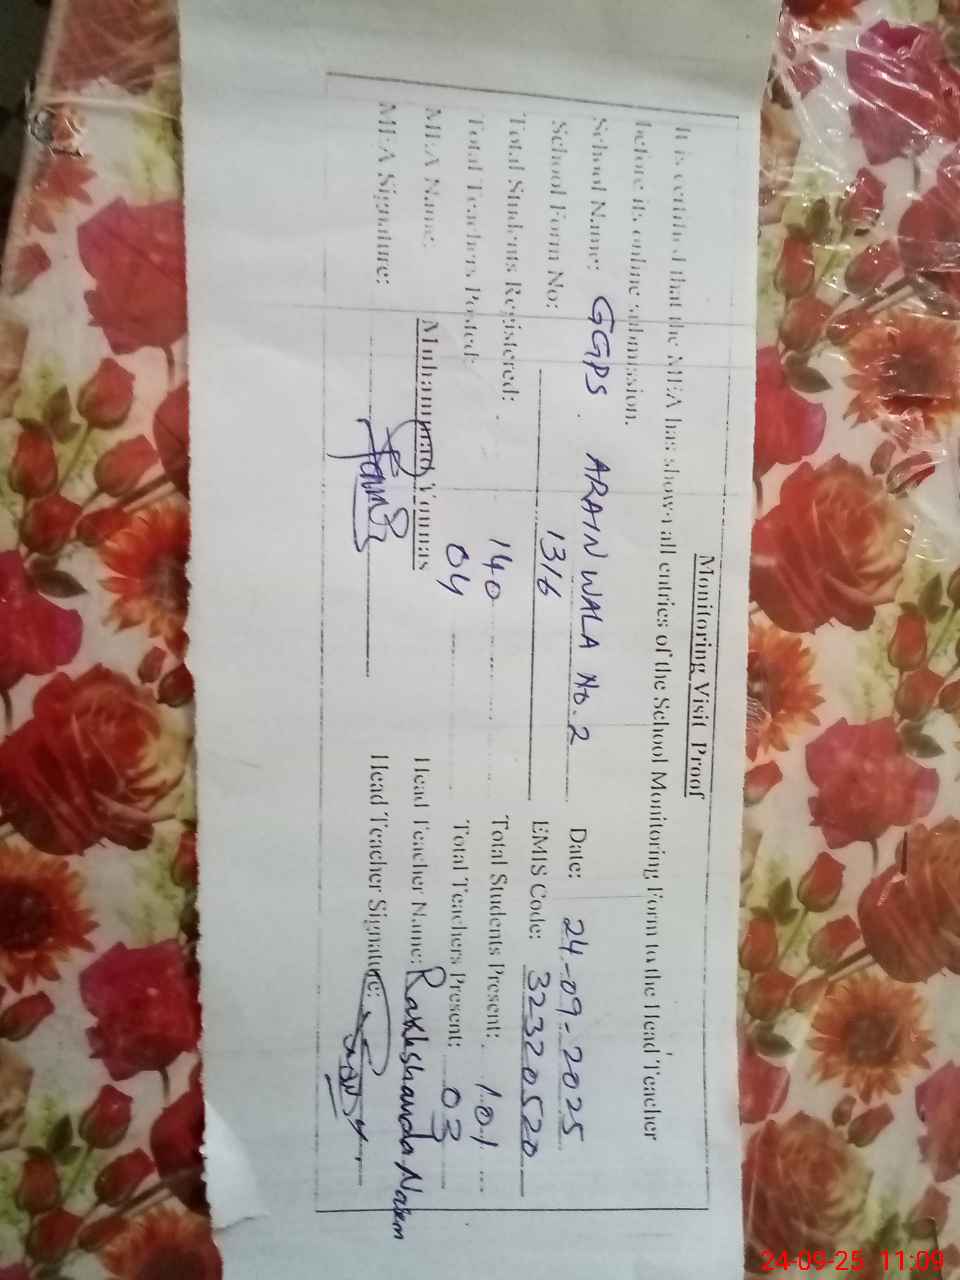 Monitoring Visit Proof
It is certified that the MEA has shown all entries of the School Monitoring Form to the Head Teacher
before its online submission.
School Name: GGPS . ARAIN WALA No. 2 Date: 24-09-2025
School Form No: 1316 EMIS Code: 32320520
Total Students Registered: 140 Total Students Present: 101
Total Teachers Posted: 04 Total Teachers Present: 03
MEA Name: Muhammad Younas Head Teacher Name: Rakhshanda Naeem
MEA Signature: Head Teacher Signature:
24-09-25 11:09